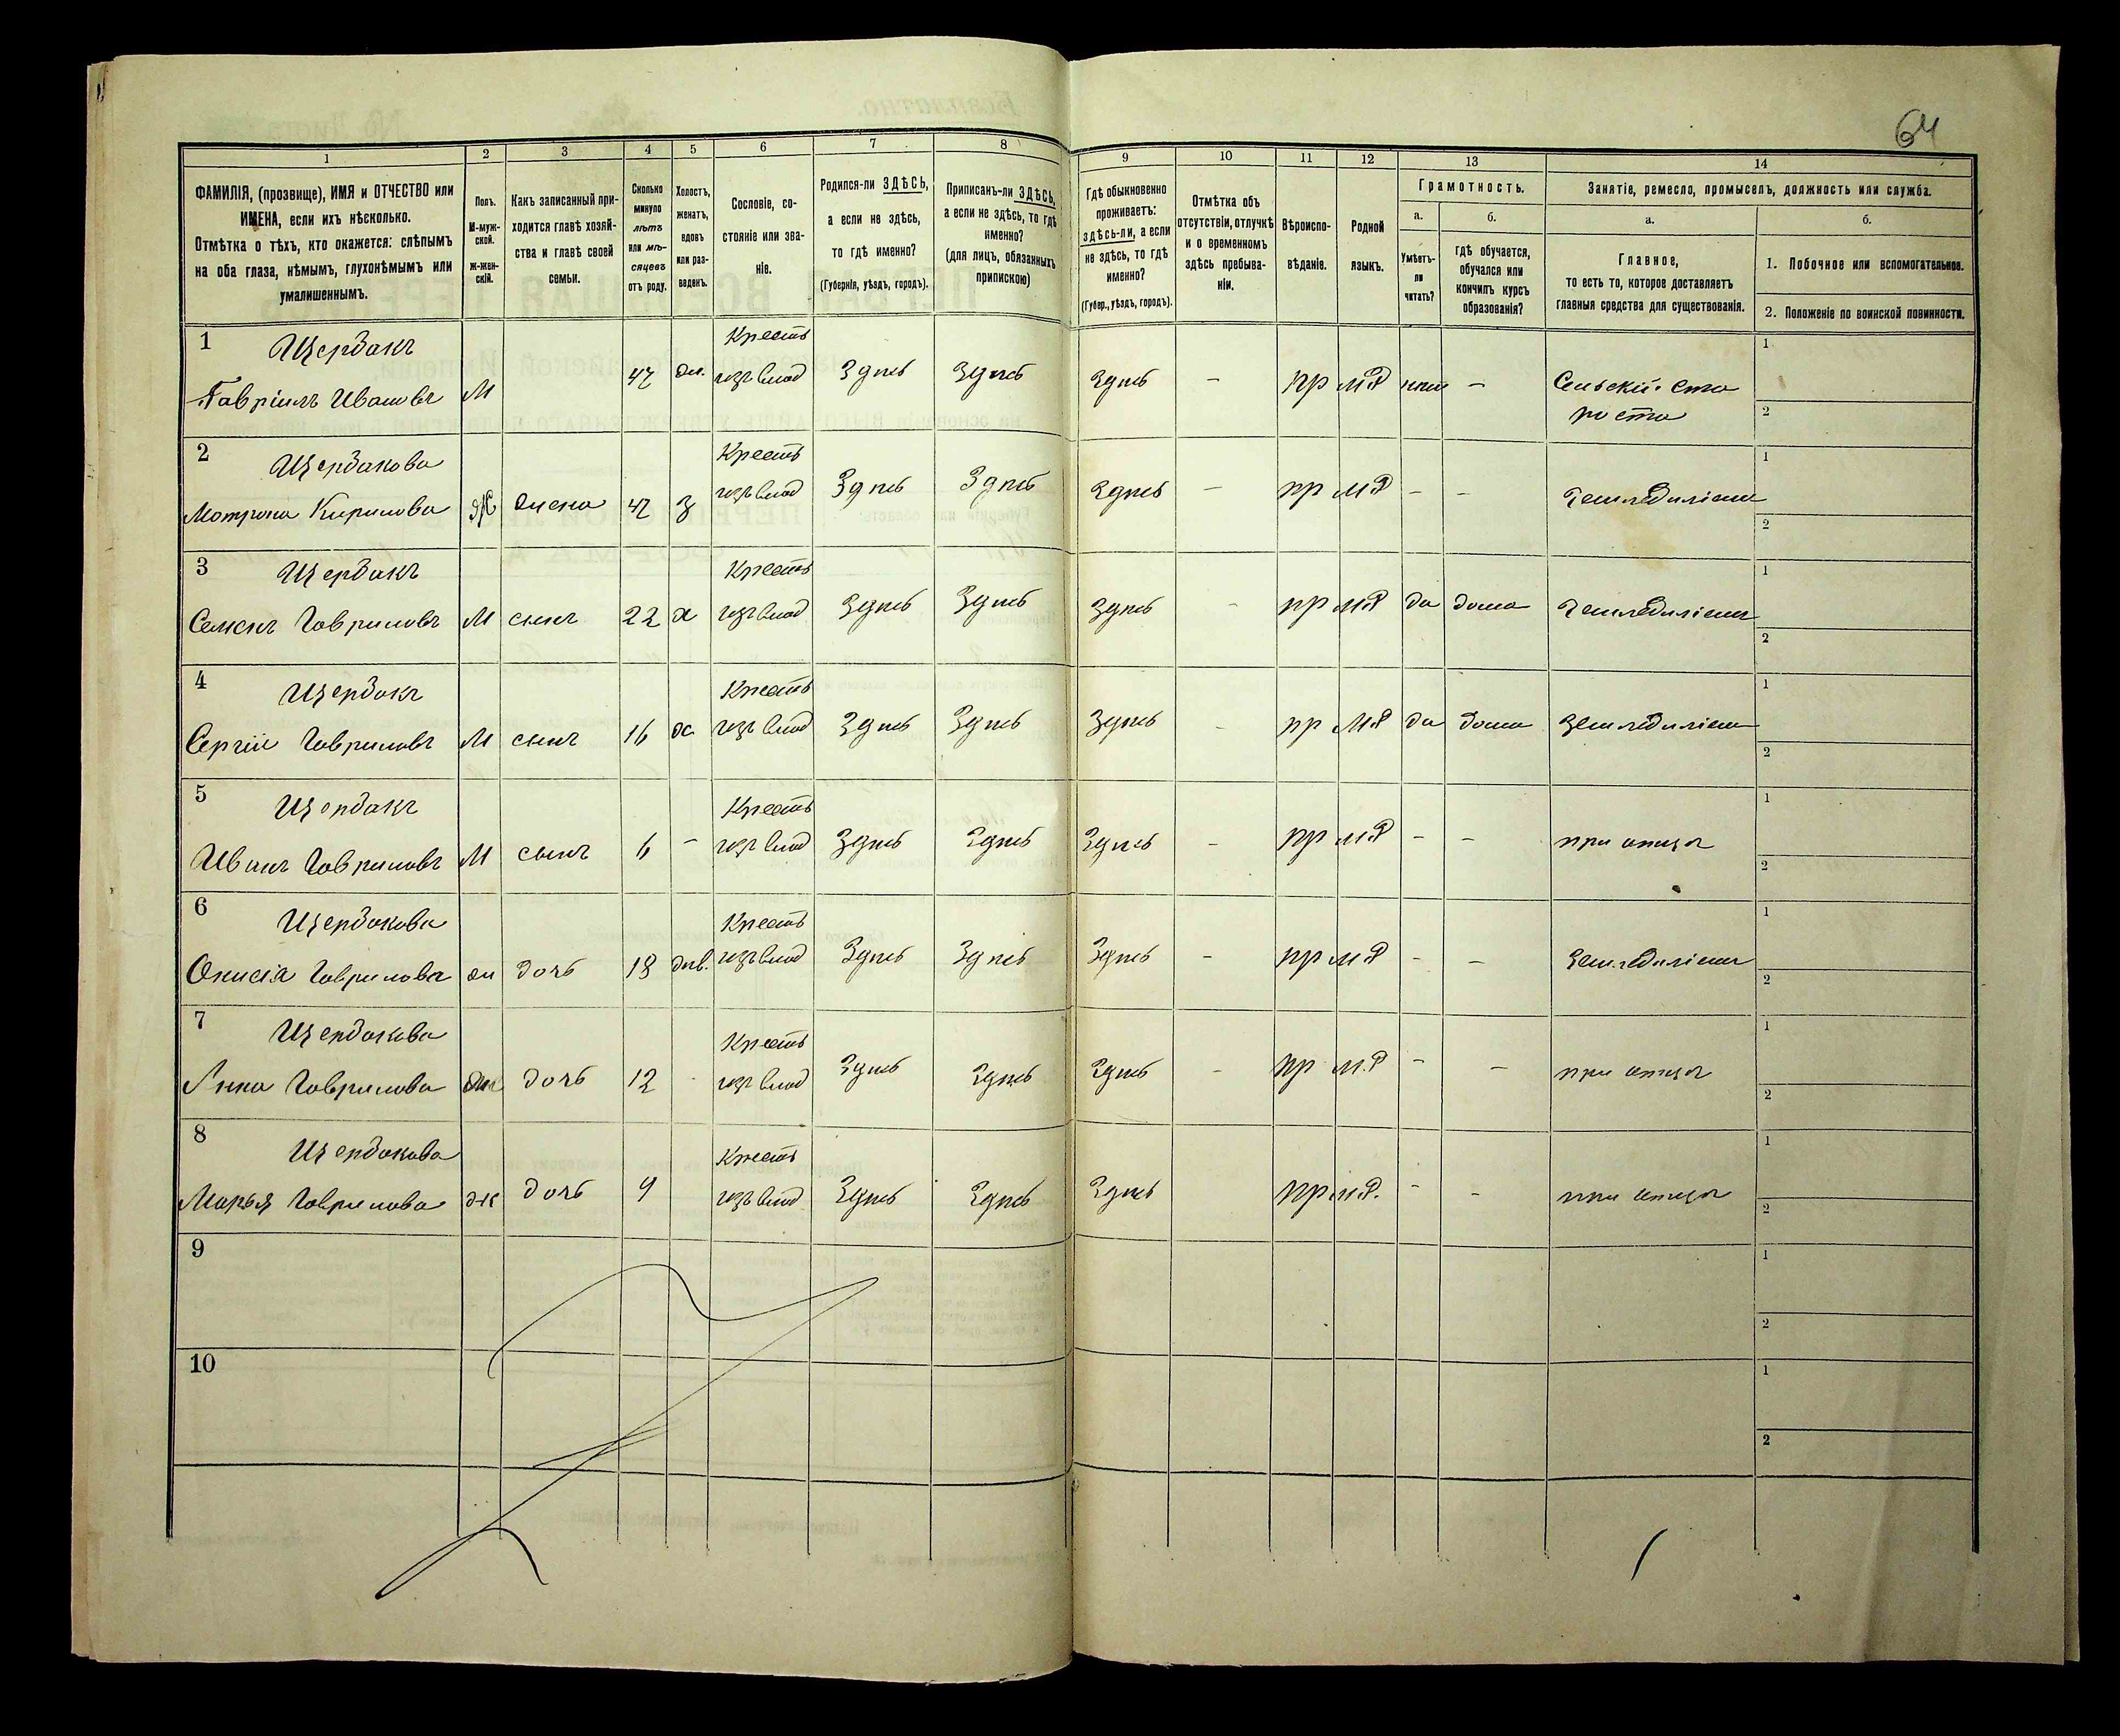 64
1 2 3 4 5 6 7 8 9 10 11 12 13 14
ФАМИЛІЯ, (прозвище), ИМЯ и ОТЧЕСТВО или
ИМЕНА, если ихъ нѣсколько.
Отмѣтка о тѣхъ, кто окажется: слѣпымъ
на оба глаза, нѣмымъ, глухонѣмымъ или
умалишеннымъ.
Полъ.
М-муж-
ской.
Ж-жен-
скій.
Какъ записанный при-
ходится главѣ хозяй-
ства и главѣ своей
семьи.
Сколько
минуло
лѣтъ
или мѣ-
сяцевъ
отъ роду.
Холостъ,
женатъ,
вдовъ
или раз-
веденъ.
Сословіе, со-
стояніе или зва-
ніе.
Родился-ли ЗДѢСЬ,
а если не здѣсь,
то гдѣ именно?
(Губернія, уѣздъ, городъ).
Приписанъ-ли ЗДѢСЬ,
а если не здѣсь, то гдѣ
именно?
(для лицъ, обязанныхъ
припискою)
Гдѣ обыкновенно
проживаетъ:
здѣсь-ли, а если
не здѣсь, то гдѣ
именно?
(Губер., уѣздъ, городъ).
Отмѣтка объ
отсутствіи, отлучкѣ
и о временномъ
здѣсь пребыва-
ніи.
Вѣроиспо-
вѣданіе.
Родной
языкъ.
Грамотность.
а.
Умѣетъ-
ли
читать?
б.
гдѣ обучается,
обучался или
кончилъ курсъ
образованія?
Занятіе, ремесло, промыселъ, должность или служба.
а.
Главное,
то есть то, которое доставляетъ
главныя средства для существованія.
б.
1. Побочное или вспомогательное.
2. Положеніе по воинской повинности.
1 Щердакъ Крестъ 1
Гавріилъ Ивановъ М 47 ж. изъ влад Здѣсь Здѣсь Здѣсь - пр МР - Сельскій ста
роста 2
2 Щердакова Крестъ 1
Мотрона Кирилова Ж жена 47 з изъ влад Здѣсь Здѣсь Здѣсь - пр МР - - Земледѣліемъ
2
3 Щердакъ Крестъ 1
Семенъ Гавриловъ М сынъ 22 х изъ влад Здѣсь Здѣсь Здѣсь - пр МР да дома Земледѣліемъ
2
4 Щердакъ Крестъ 1
Сергій Гавриловъ М сынъ 16 х изъ влад Здѣсь Здѣсь Здѣсь - пр МР да дома Земледѣліемъ
2
5 Щердакъ Крестъ 1
Иванъ Гавриловъ М сынъ 6 - изъ влад Здѣсь Здѣсь Здѣсь - пр МР - - при отцѣ
2
6 Щердакова Крестъ 1
Онисія Гаврилова ж дочь 18 дѣв. изъ влад Здѣсь Здѣсь Здѣсь - пр МР - - Земледѣліемъ
2
7 Щердакова Крестъ 1
Анна Гаврилова ж дочь 12 - изъ влад Здѣсь Здѣсь Здѣсь - пр М.Р - - при отцѣ
2
8 Щердакова Крестъ 1
Марья Гаврилова ж дочь 9 изъ влад Здѣсь Здѣсь Здѣсь пр МР. - - при отцѣ
2
9 1
2
10 1
2